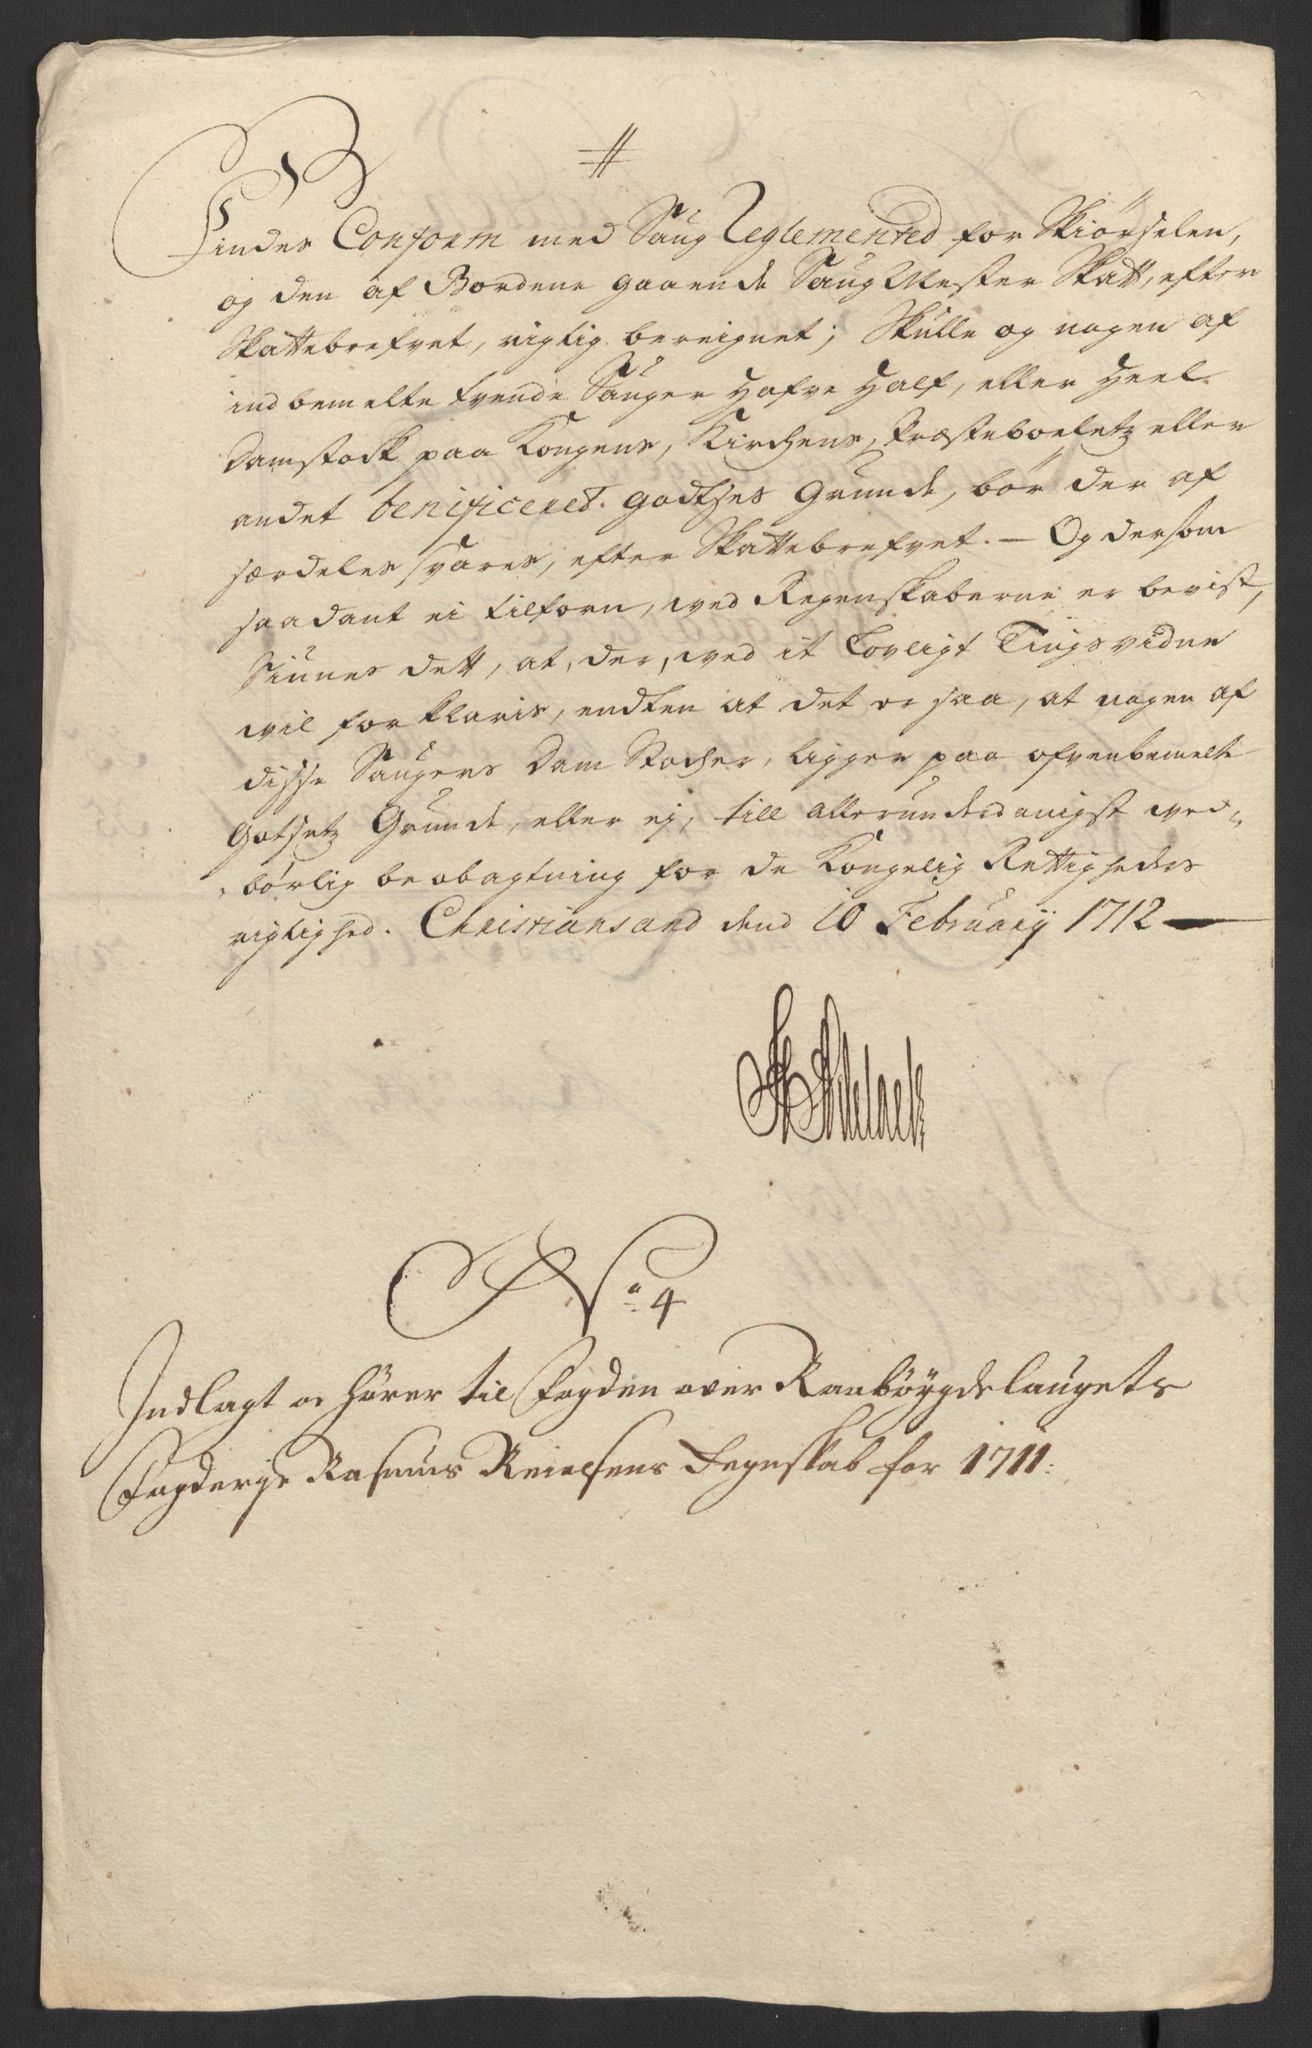 #
Findes Conform med Saug Reglemented for Skiørselen,
og den af Bordene gaaende Saug Mester Skatt, efter
Skattebrefvet, rigtig bereignet; Skulle og nogen af
indbemelte tvende Sauger Hafve Half, eller Heel
Damstock paa Kongens, Kirchens, Præsteboeletz eller
andet benificeret godtses Grunde, bør der af
særdeles svares, efter Skattebrefvet. — Og dersom
saadant ei tilforn, wed Regenskaberne er bevist,
Siunes dett, at, der, wed it Lovligt Tingsvidne
wil forklaris, endten at det er saa, at nogen af
disse Saugers Dam Stocher, ligger paa ofvenbemelte
Gotsetz Grunde, eller ej, till allerunderdanigst wed„
„børlig beobagtning for de Kongelig Rettigheders
rigtighed. Christiansand dend 10 Februarij 1712 —
No 4
Indlagt oc hörer til Fogden over Raabøygdelaugets
Fogderje Rasmus Reiersens Regnskab for 1711: